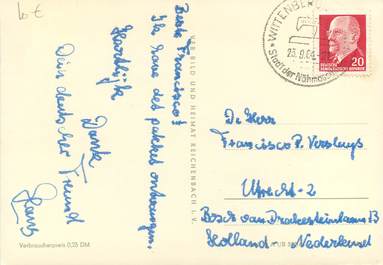 10 €
Beste Francisco!
Ik have des pakket ontvangen.
Hartelijk
Danke
Dein deutscher Freund
Hans
VEB BILD UND HEIMAT REICHENBACH I. V.
Verbraucherpreis 0,25 DM
WITTENBER
Stadt der Nähmasch
20
DEUTSCHE
DEMOKRATISCHE REPUBLIK
De Herr
Francisco P. Versluys
Utrecht-2
Bosch van Drakesteinlaan 13
Holland - Nederland